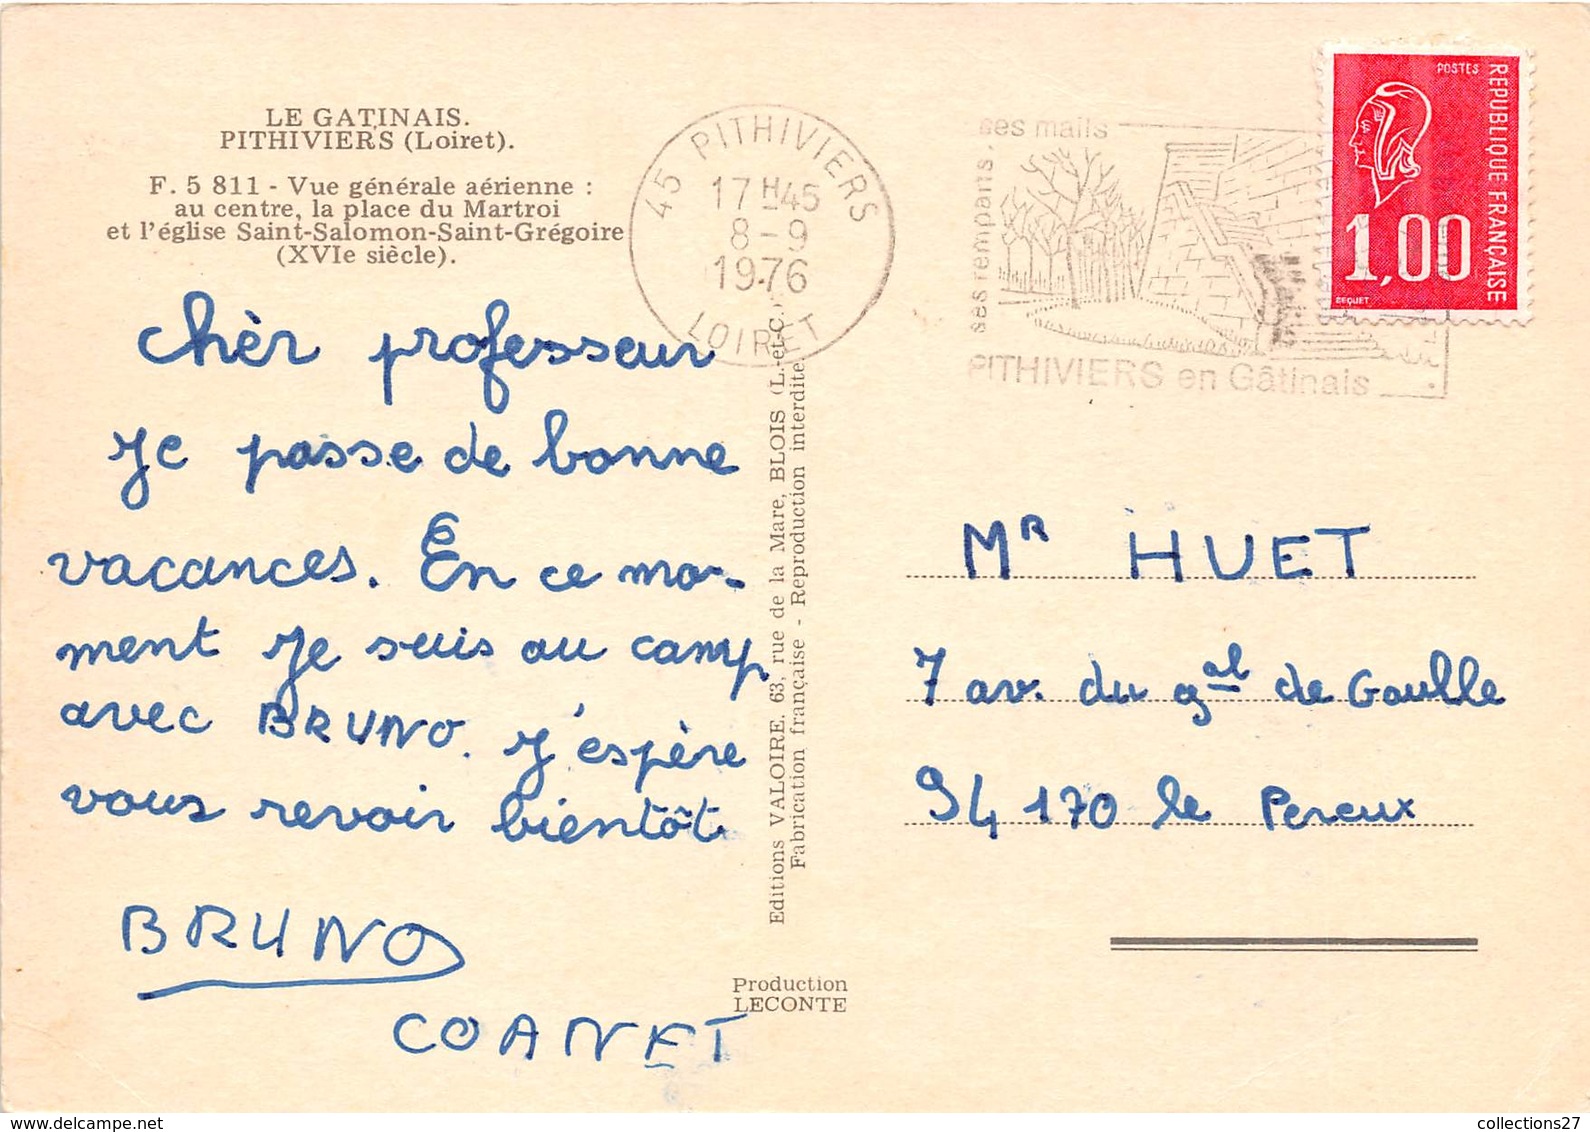 LE GATINAIS.
PITHIVIERS (Loiret).
F. 5 811 - Vue générale aérienne :
au centre, la place du Martroi
et l'église Saint-Salomon-Saint-Grégoire
(XVIe siècle).
chèr professeur
Je passe de bonne
vacances. En ce mo-
ment je suis au camp
avec BRUNO. j'espère
vous revoir bientôt
BRUNO
COANET
45 PITHIVIERS
17 H 45
8-9
1976
LOIRET
Editions VALOIRE. 63, rue de la Mare, BLOIS (L.-et-C.)
Fabrication française - Reproduction interdite
Production
LECONTE
ses remparts, ses mails
PITHIVIERS en Gâtinais
POSTES
REPUBLIQUE FRANÇAISE
1,00
BEQUET
Mr HUET
7 av. du gal de Gaulle
94 170 le Perreux
collections27